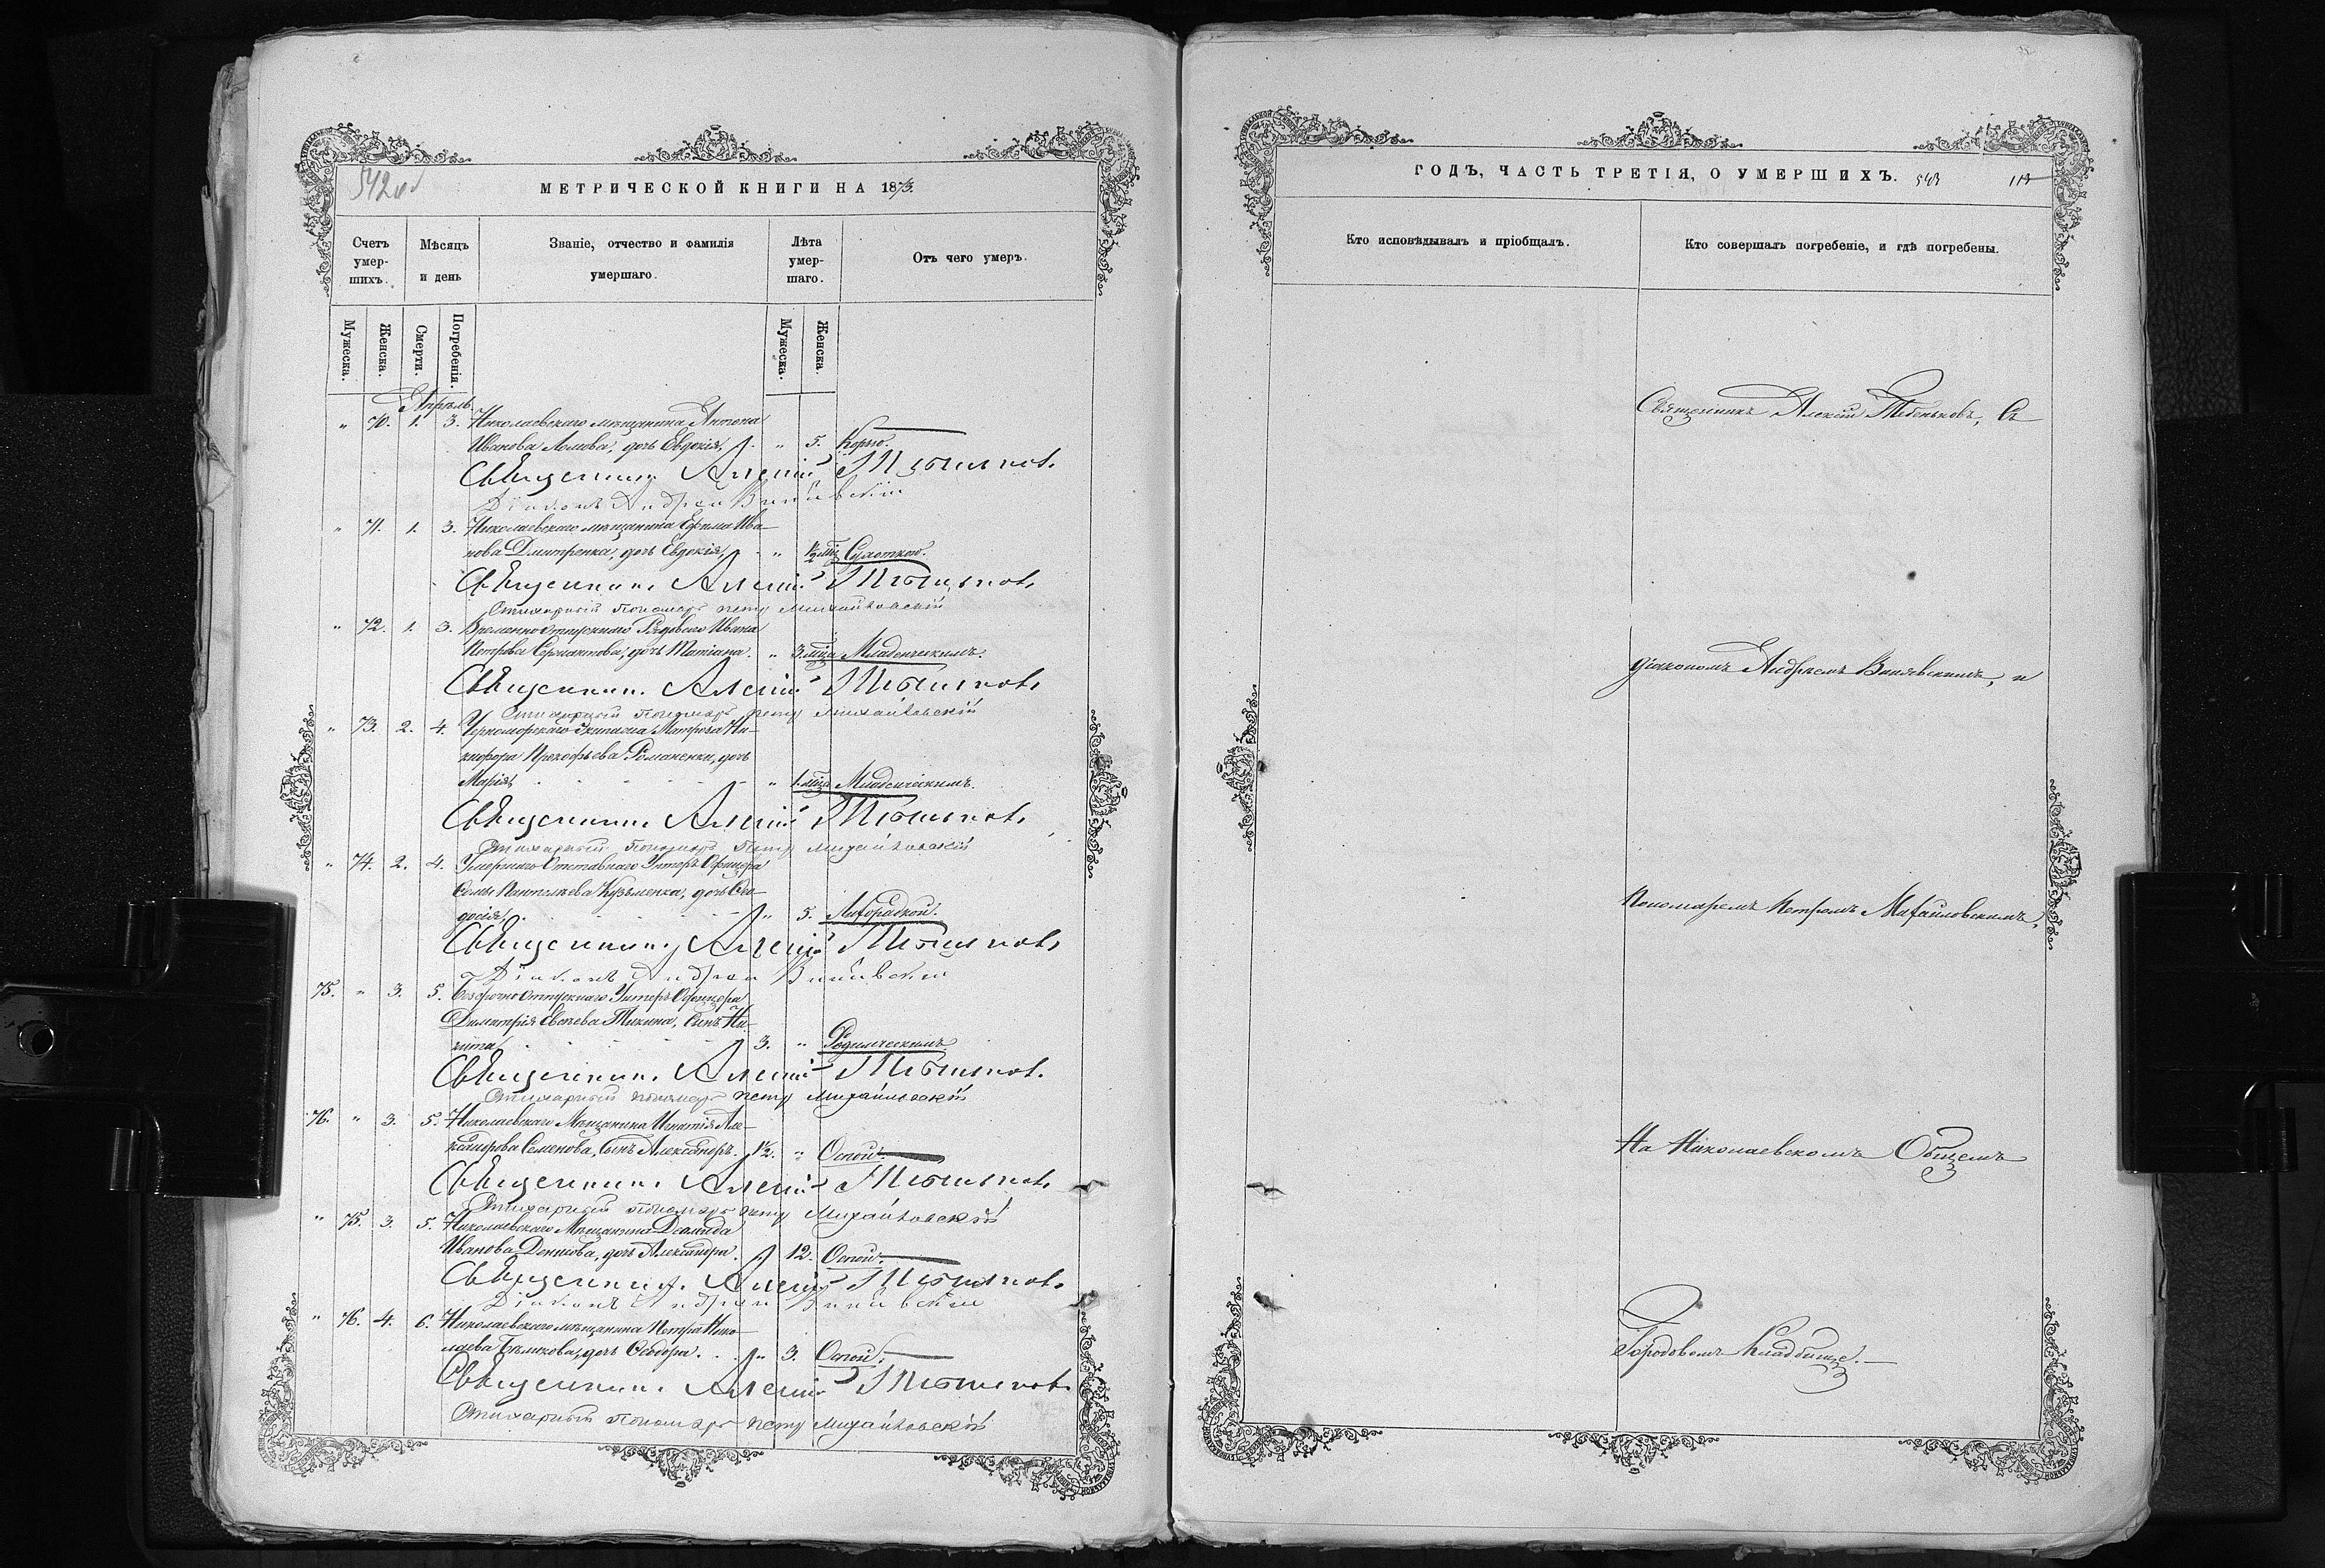 542об
МЕТРИЧЕСКОЙ КНИГИ НА 1873.
Счетъ умер-шихъ.
Мѣсяцъ и день
Званіе, отчество и фамилія умершаго.
Лѣта умер-шаго.
Отъ чего умеръ.
Мужеска. Женска. Смерти. Погребенія. Мужеска. Женска.
Апрѣль
" 70. 1. 3. Николаевскаго мѣщанина Антона
Иванова Ломова, дочь Евдокія, " 5. Корью.
Священникъ Алексій Тебеньковъ
Діаконъ Андрей
" 71. 1. 3. Николаевскаго мѣщанина Ефима Ива-
нова Дмитренка, дочь Евдокія, " Сухоткою.
Священникъ Алексій Тебеньковъ
Стихарный Пономарь Петръ Михайловскій
" 72. 1. 3. Временно отпускнаго Рядоваго Ивана
Петрова дочь Татіана. " 3. мца Младенческимъ.
Священникъ Алексій Тебеньковъ
Стихарный Пономарь Петръ Михайловскій
" 73. 2. 4. Черноморскаго Экипажа Матроса Ни-
кифора Прокофьева Романенки, дочь
Марія, " 1. мца Младенческимъ.
Священникъ Алексій Тебеньковъ
Стихарный Пономарь Петръ Михайловскій
" 74. 2. 4. Умершаго Отставнаго Унтеръ Офицера
Семы Пантелѣева Кузьменка, дочь Ѳео-
досія, " 5. Лихорадкой.
Священникъ Алексій Тебеньковъ
Діаконъ Андрей
75. " 3. 5. Безсрочно отпускнаго Унтеръ Офицера
Димитрія Евсѣева Тикина, сынъ Ни-
кита 3. " Родимческимъ.
Священникъ Алексій Тебеньковъ
Стихарный Пономарь Петръ Михайловскій
76. " 3. 5. Николаевскаго Мѣщанина Игнатія Але-
ксандрова Семенова, сынъ Александръ. 1½. " Оспой.
Священникъ Алексій Тебеньковъ
Стихарный Пономарь Петръ Михайловскій
" 75. 3. 5. Николаевскаго Мѣщанина Діомида
Иванова Донцова, дочь Александра. 12. Оспой.
Священникъ Алексій Тебеньковъ
Діаконъ Андрей
" 76. 4. 6. Николаевскаго мѣщанина Петра Нико-
лаева Бѣликова, дочь Ѳеодора. " 3. Оспой.
Священникъ Алексій Тебеньковъ
Стихарный Пономарь Петръ Михайловскій
ГОДЪ, ЧАСТЬ ТРЕТІЯ, О УМЕРШИХЪ. 543
Кто исповѣдывалъ и пріобщалъ.
Кто совершалъ погребеніе, и гдѣ погребены.
Священникъ Алексій Тебеньковъ, съ
діакономъ Андреемъ и
Пономаремъ Петромъ Михайловскимъ,
На Николаевскомъ Общемъ
Городовомъ Кладбищѣ.